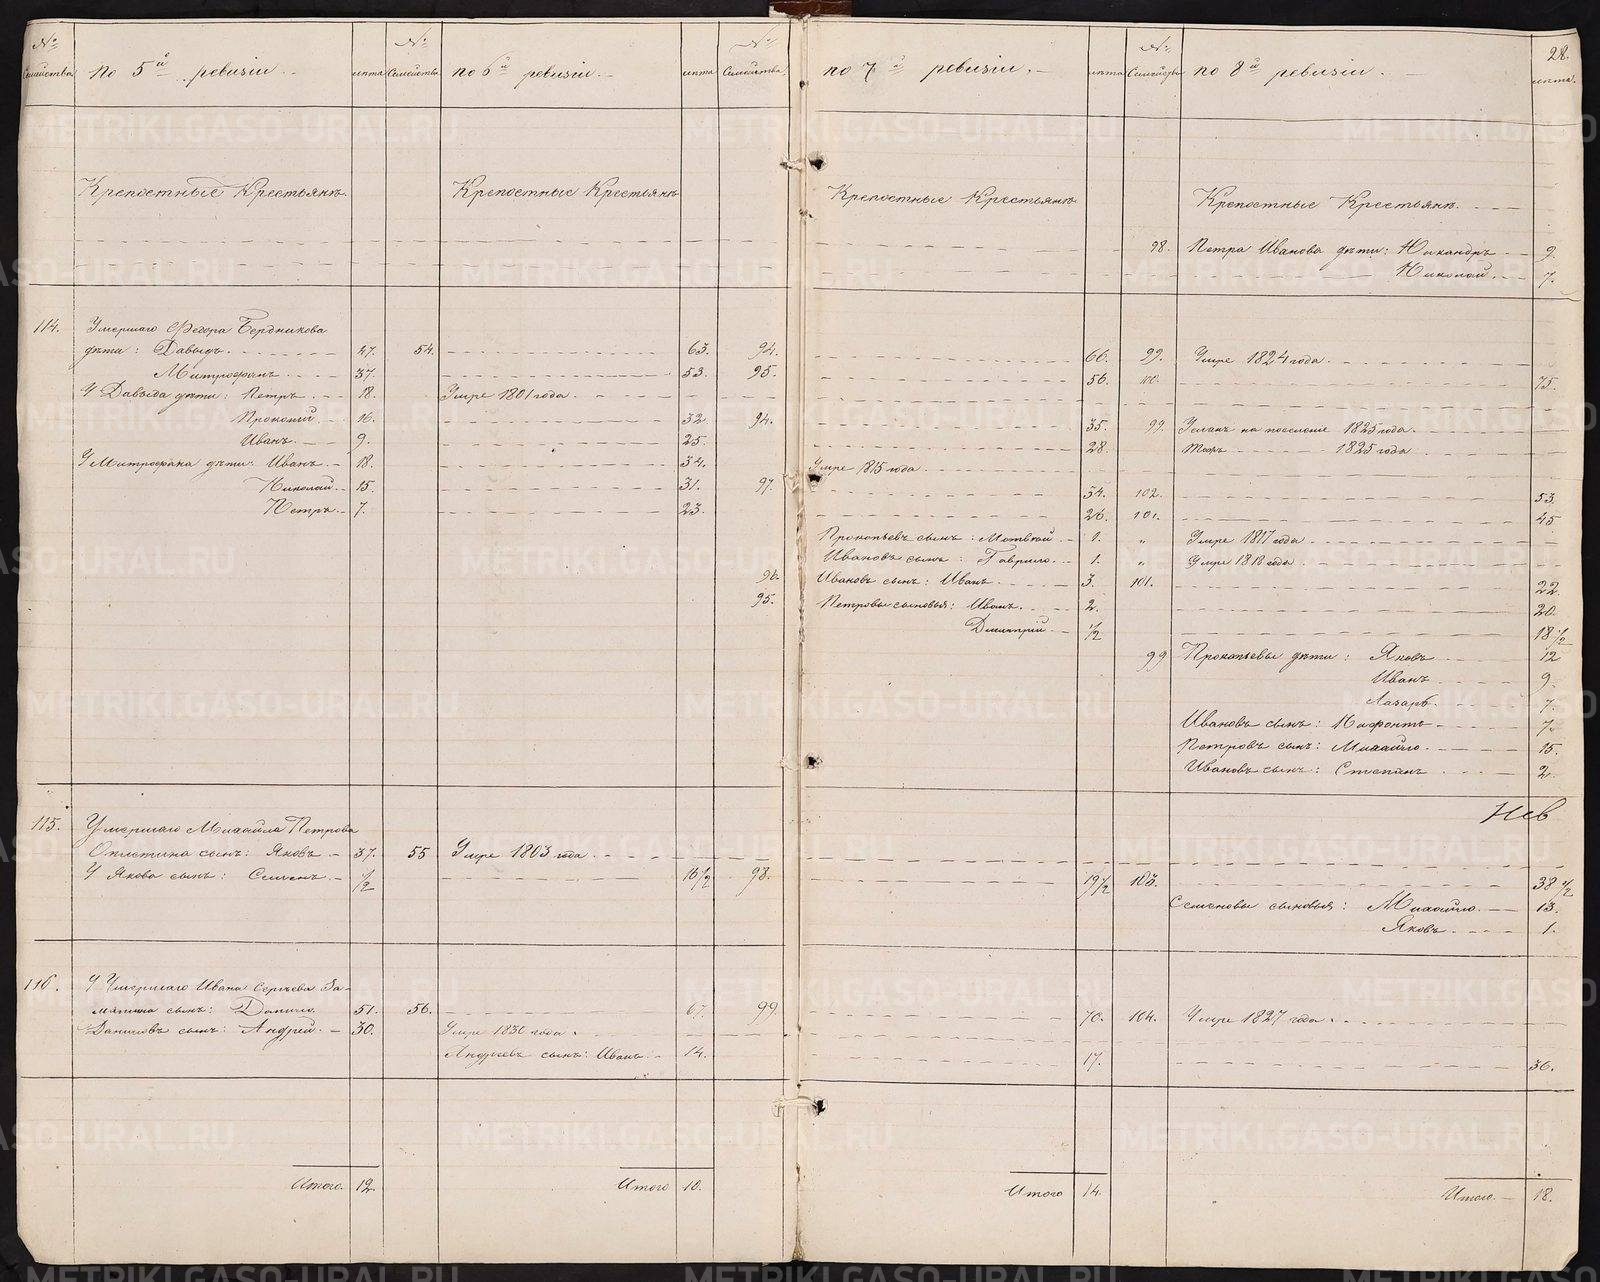 28.
№ Семейства По 5й ревизiи. лѣта № Семейства по 6й ревизiи. лѣта № Семейства по 7й ревизiи. лѣта № Семейства по 8й ревизiи. лѣта.
Крепостные Крестьянъ Крепостные Крестьянъ Крепостные Крестьянъ Крепостные Крестьянъ.
98. Петра Иванова дѣти: Никандръ 9.
Николай 7.
114. Умершаго Федора Бердникова
дѣти: Давыдъ 47. 54. 63. 94. 66. 99. Умре 1824 года.
Митрофанъ 37. 53. 95. 56. 100. 75.
У Давыда дѣти: Петръ 18. Умре 1801 года.
Прокопiй 16. 32. 94. 35. 99. Усланъ на поселенiе 1825 года.
Иванъ 9. 25. 28. Тожъ 1825 года
У Митрофана дѣти: Иванъ 18. 34. Умре 1815 года
Николай 15. 31. 97. 34. 102. 53.
Петръ 7. 23. 26. 101. 45
Прокопьевъ сынъ: Матвѣй 1. " Умре 1817 года
Ивановъ сынъ: Гаврило 1. " Умре 1818 года
96. Ивановъ сынъ: Иванъ 3. 101. 22.
95. Петровы сыновья: Иванъ 2. 20.
Дмитрiй 1/2 18 1/2
99 Прокопьевы дѣти: Яковъ 12
Иванъ 9.
Лазарь 7.
Ивановъ сынъ: Нифонтъ 7.
Петровъ сынъ: Михайло 15.
Ивановъ сынъ: Степанъ 2.
115. Умершаго Михайла Петрова
сынъ: Яковъ 37. 55 Умре 1803 года.
У Якова сынъ: Семенъ 1/2 16 1/2 98. 19 1/2 103. 38 1/2
Семеновы сыновья: Михайло 13.
Яковъ 1.
116. У Умершаго Ивана Сергѣева
сынъ: Данило 51. 56. 67. 99. 70. 104. Умре 1827 года.
Даниловъ сынъ: Андрей 30. Умре года.
Андреевъ сынъ: Иванъ 14. 17. 36.
Итого 12. Итого 10. Итого 14. Итого 18.
METRIKI.GASO-URAL.RU